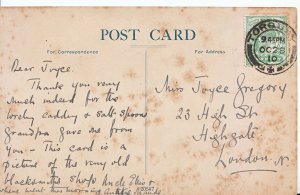 POST CARD
For Correspondence
For Address
TORQUAY
9 45 PM
OC 28
10
Dear Joyce.
Thank you very
much indeed for the
lovely Caddy & Salt-Spoons
Grandpa gave me from
you — This card is a
picture of the very old
Blacksmiths Shop
where went this morning
Uncle
Miss Joyce Gregory
23 High St
Highgate
London. N.